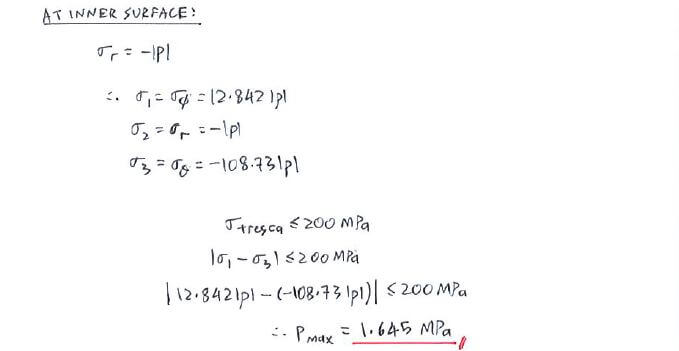 AT INNER SURFACE:
σr = -|p|
∴ σ1 = σϕ = 12.842|p|
σ2 = σr = -|p|
σ3 = σθ = -108.73|p|
σtresca ≤ 200 MPa
|σ1 - σ3| ≤ 200 MPa
|12.842|p| - (-108.73|p|)| ≤ 200 MPa
∴ Pmax = 1.645 MPa